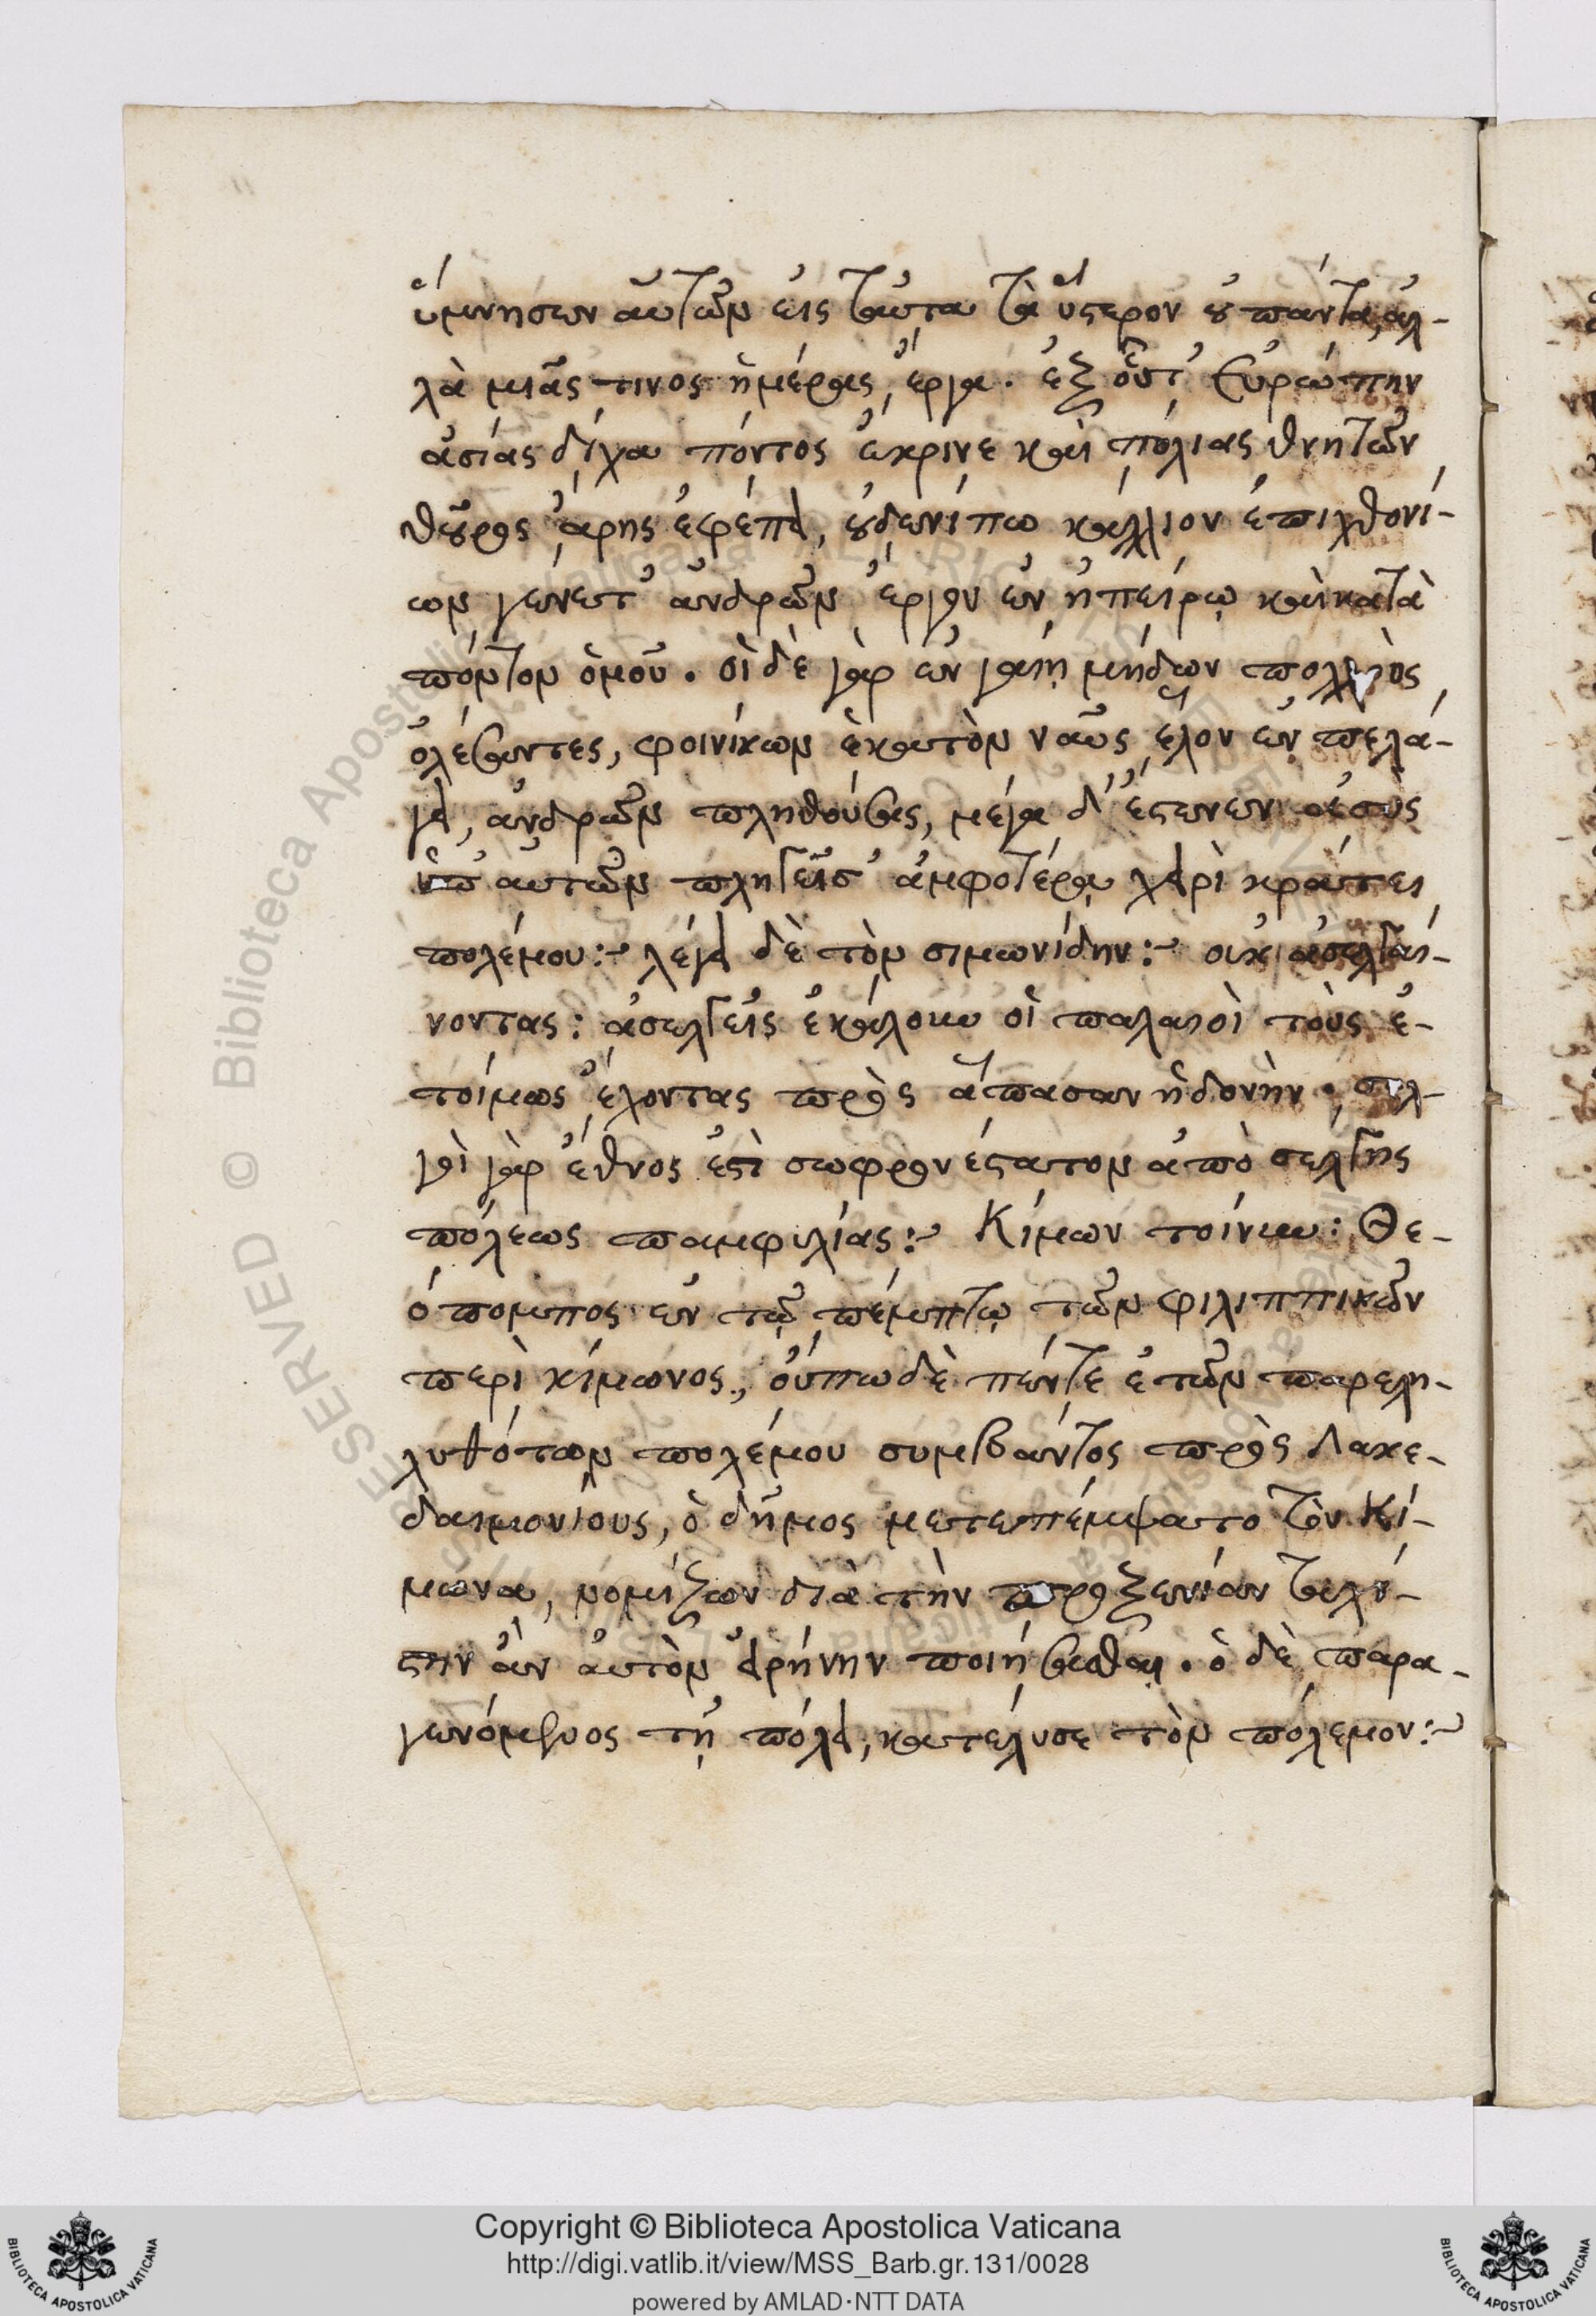 ὕμνησεν αὐτῶν εἰς ταῦτα τὰ ὕστερον οὐ πάντα, ἀλ-
λὰ μιᾶς τινος ἡμέρας ἔργα. ἐξ οὗτ' Εὐρώπην
ἀσίας δίχα πόντος ἔκρινε καὶ πόλιας θνητῶν
θοῦρος ἄρης ἐφέπει, οὐδενί πω κάλλιον ἐπιχθονί-
ων γένετ' ἀνδρῶν ἔργον ἐν ἠπείρῳ καὶ κατὰ
πόντον ὁμοῦ. οἱ δὲ γὰρ ἐν γαίῃ μήδων πολλοὺς
ὀλέσαντες, φοινίκων ἑκατὸν ναῦς ἕλον ἐν πελά-
γει, ἀνδρῶν πληθούσας, μέγα δ' ἔστενεν
ὑπ' αὐτῶν πληγεῖσ' ἀμφοτέρα χειρὶ κράτει
πολέμου: λέγει δὲ τὸν σιμωνίδην: οὐκ ἀσελγαί-
νοντας: ἀσελγεῖς ἐκάλουν οἱ παλαιοὶ τοὺς ἑ-
τοίμως ἔχοντας πρὸς ἅπασαν ἡδονὴν· σελ-
γοὶ γὰρ ἔθνος ἐστὶ σωφρονέστατον ἀπὸ σέλγης
πόλεως παμφυλίας: Κίμων τοίνυν: Θε-
όπομπος ἐν τῷ πέμπτῳ τῶν φιλιππικῶν
περὶ κίμωνος, οὔπω δὲ πέντε ἐτῶν παρελη-
λυθότων πολέμου συμβάντος πρὸς Λακε-
δαιμονίους, ὁ δῆμος μετεπέμψατο τὸν Κί-
μωνα, νομίζων διὰ τὴν προξενίαν ταχί-
στην ἂν αὐτὸν εἰρήνην ποιήσασθαι. ὁ δὲ παρα-
γενόμενος τῇ πόλει, κατέλυσε τὸν πόλεμον:
Copyright © Biblioteca Apostolica Vaticana
http://digi.vatlib.it/view/MSS_Barb.gr.131/0028
powered by AMLAD·NTT DATA